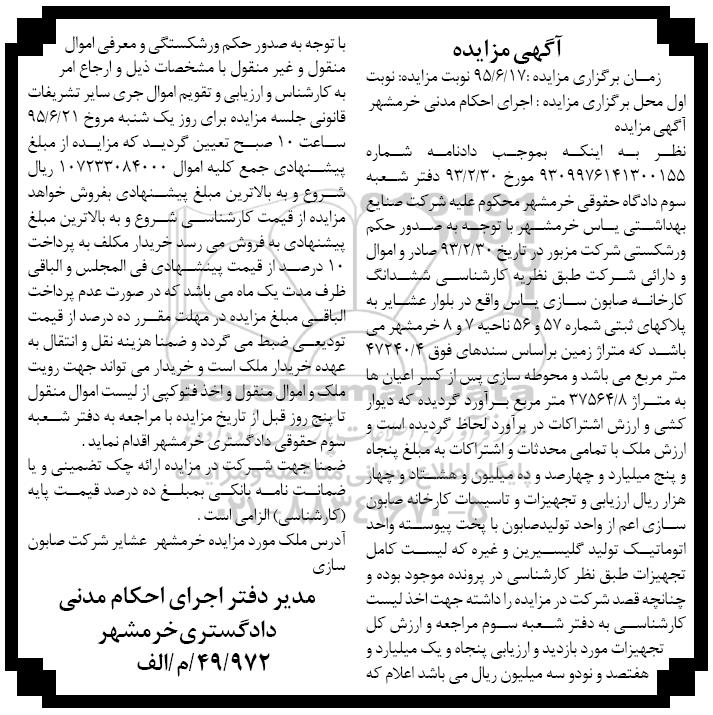 آگهی مزایده
زمــان برگزاری مزایده :۹۵/۶/۱۷ نوبت مزایده: نوبت
اول محل برگزاری مزایده : اجرای احکام مدنی خرمشهر
آگهی مزایده
نظــر بــه اینکــه بموجــب دادنامــه شــماره
۹۳۰۹۹۷۶۱۴۱۳۰۰۱۵۵ مورخ ۹۳/۲/۳۰ دفتر شــعبه
سوم دادگاه حقوقی خرمشهر محکوم علیه شرکت صنایع
بهداشــتی یــاس خرمشــهر با توجــه به صدور حکم
ورشکستی شرکت مزبور در تاریخ ۹۳/۲/۳۰ صادر و اموال
و دارائی شــرکت طبق نظریه کارشناســی ششــدانگ
کارخانــه صابون ســازی یــاس واقع در بلوار عشــایر به
پلاکهای ثبتی شماره ۵۷ و ۵۶ ناحیه ۷ و ۸ خرمشهر می
باشــد که متراژ زمین براساس سندهای فوق ۴۷۲۴۰/۴
متر مربع می باشد و محوطه سازی پس از کسر اعیان ها
به متــراژ ۳۷۵۶۴/۸ متر مربع بــرآورد گردیده که دیوار
کشی و ارزش اشتراکات در برآورد لحاظ گردیده است و
ارزش ملک با تمامی محدثات و اشتراکات به مبلغ پنجاه
و پنج میلیارد و چهارصد و ده میلیون و هشــتاد و چهار
هزار ریال ارزیابی و تجهیزات و تاسیسات کارخانه صابون
ســازی اعم از واحد تولیدصابون با پخت پیوســته واحد
اتوماتیــک تولید گلیســیرین و غیره که لیســت کامل
تجهیزات طبق نظر کارشناسی در پرونده موجود بوده و
چنانچه قصد شرکت در مزایده را داشته جهت اخذ لیست
کارشناســی به دفتر شــعبه ســوم مراجعه و ارزش کل
تجهیزات مورد بازدید و ارزیابی پنجاه و یک میلیارد و
هفتصد و نودو سه میلیون ریال می باشد اعلام که
با توجه به صدور حکم ورشکستگی و معرفی اموال
منقول و غیر منقول با مشخصات ذیل و ارجاع امر
به کارشناس و ارزیابی و تقویم اموال جری سایر تشریفات
قانونی جلسه مزایده برای روز یک شنبه مروخ ۹۵/۶/۲۱
ســاعت ۱۰ صبــح تعیین گردیــد که مزایــده از مبلغ
پیشــنهادی جمع کلیه اموال ۱۰۷۲۳۳۰۸۴۰۰۰ ریال
شــروع و به بالاترین مبلغ پیشــنهادی بفروش خواهد
مزایده از قیمت کارشناســی شروع و به بالاترین مبلغ
پیشنهادی به فروش می رسد خریدار مکلف به پرداخت
۱۰ درصــد از قیمت پیشــنهادی فی المجلس و الباقی
ظرف مدت یک ماه می باشد که در صورت عدم پرداخت
الباقــی مبلغ مزایده در مهلت مقــرر ده درصد از قیمت
تودیعــی ضبط می گردد و ضمنا هزینه نقل و انتقال به
عهده خریدار ملک است و خریدار می تواند جهت رویت
ملک و اموال منقول و اخذ فتوکپی از لیست اموال منقول
تا پنج روز قبل از تاریخ مزایده با مراجعه به دفتر شــعبه
سوم حقوقی دادگستری خرمشهر اقدام نماید .
ضمنا جهت شــرکت در مزایده ارائه چک تضمینی و یا
ضمانــت نامه بانکــی بمبلــغ ده درصد قیمــت پایه
(کارشناسی) الزامی است .
آدرس ملک مورد مزایده خرمشهر عشایر شرکت صابون
سازی
مدیر دفتر اجرای احکام مدنی
دادگستری خرمشهر
۴۹/۹۷۲/م/الف
ParsNamadData
۰۲۱-۸۸۳۴۹۶۷۰-۵